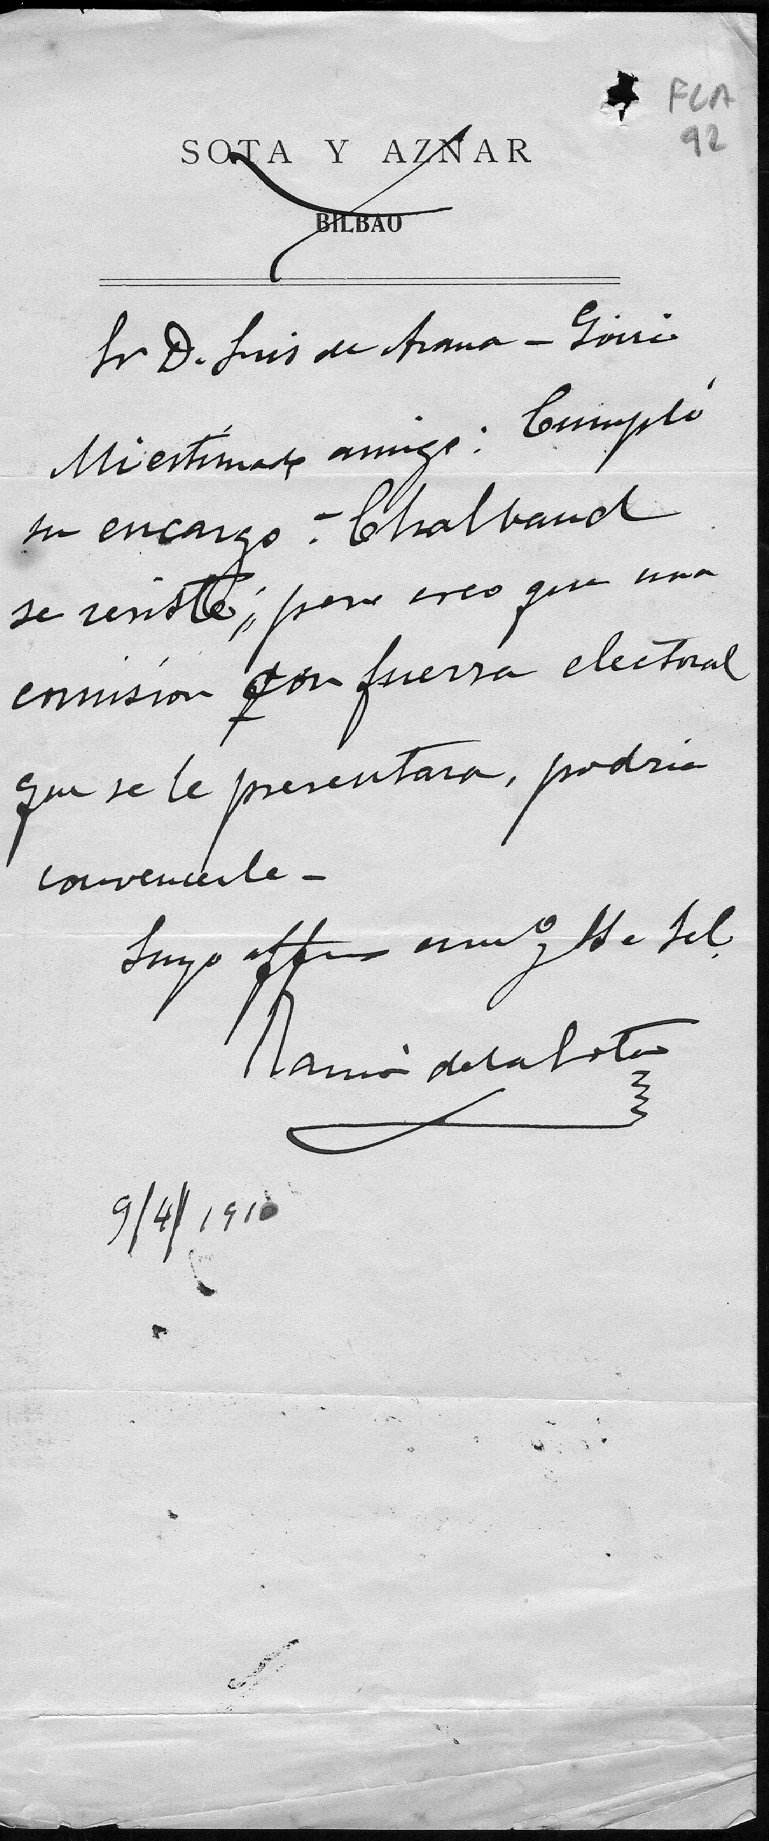 FLA
92
SOTA Y AZNAR
BILBAO
Sr D. Luis de Arana - Goiri
Mi estimado amigo: Cumplí
su encargo - Chalbaud
se resiste; pero creo que una
comisión con fuerza electoral
que se le presentara, podria
convencerle -
Suyo affmo amigo
Ramón de la Sota
9/4/1910